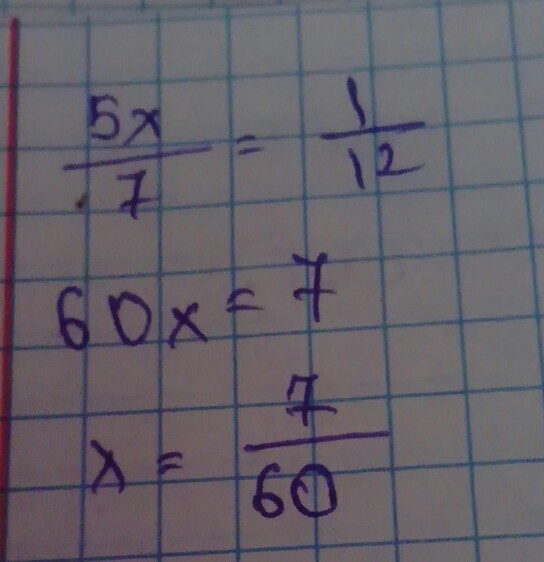 5x/7 = 1/12
60x = 7
x = 7/60